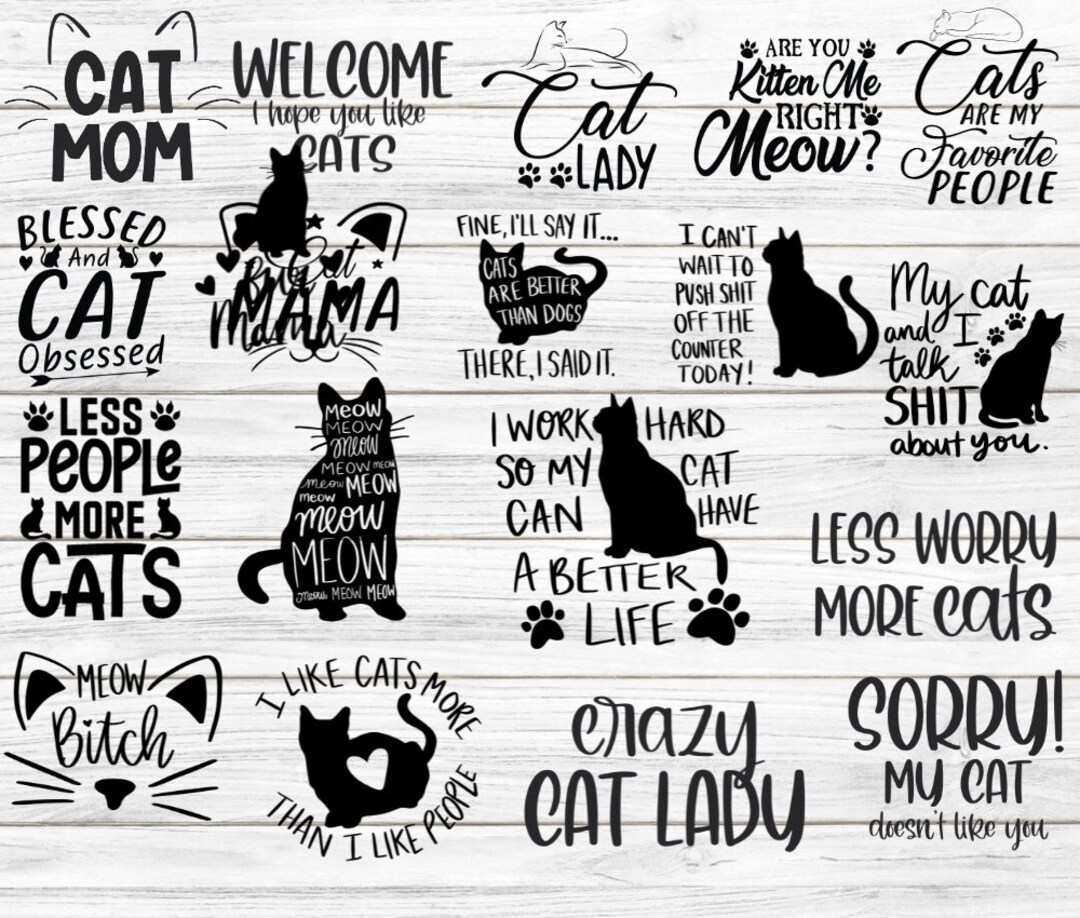 CAT
MOM
WELCOME
I hope you like
CATS
Cat
LADY
ARE YOU
Kitten Me
RIGHT
Meow?
Cats
ARE MY
Favorite
PEOPLE
BLESSED
And
CAT
Obsessed
Cat
MAMA
mama
FINE, I'LL SAY IT...
CATS
ARE BETTER
THAN DOGS
THERE, I SAID IT.
I CAN'T
WAIT TO
PUSH SHIT
OFF THE
COUNTER
TODAY!
My cat
and I
talk
SHIT
about you.
LESS
PEOPLE
MORE
CATS
MEOW
MEOW
meow
MEOW MEOW
meow MEOW
meow
meow
MEOW
meow MEOW MEOW
I WORK HARD
SO MY CAT
CAN HAVE
A BETTER
LIFE
LESS WORRY
MORE cats
MEOW
Bitch
I LIKE CATS MORE
THAN I LIKE PEOPLE
crazy
CAT LADY
SORRY!
MY CAT
doesn't like you